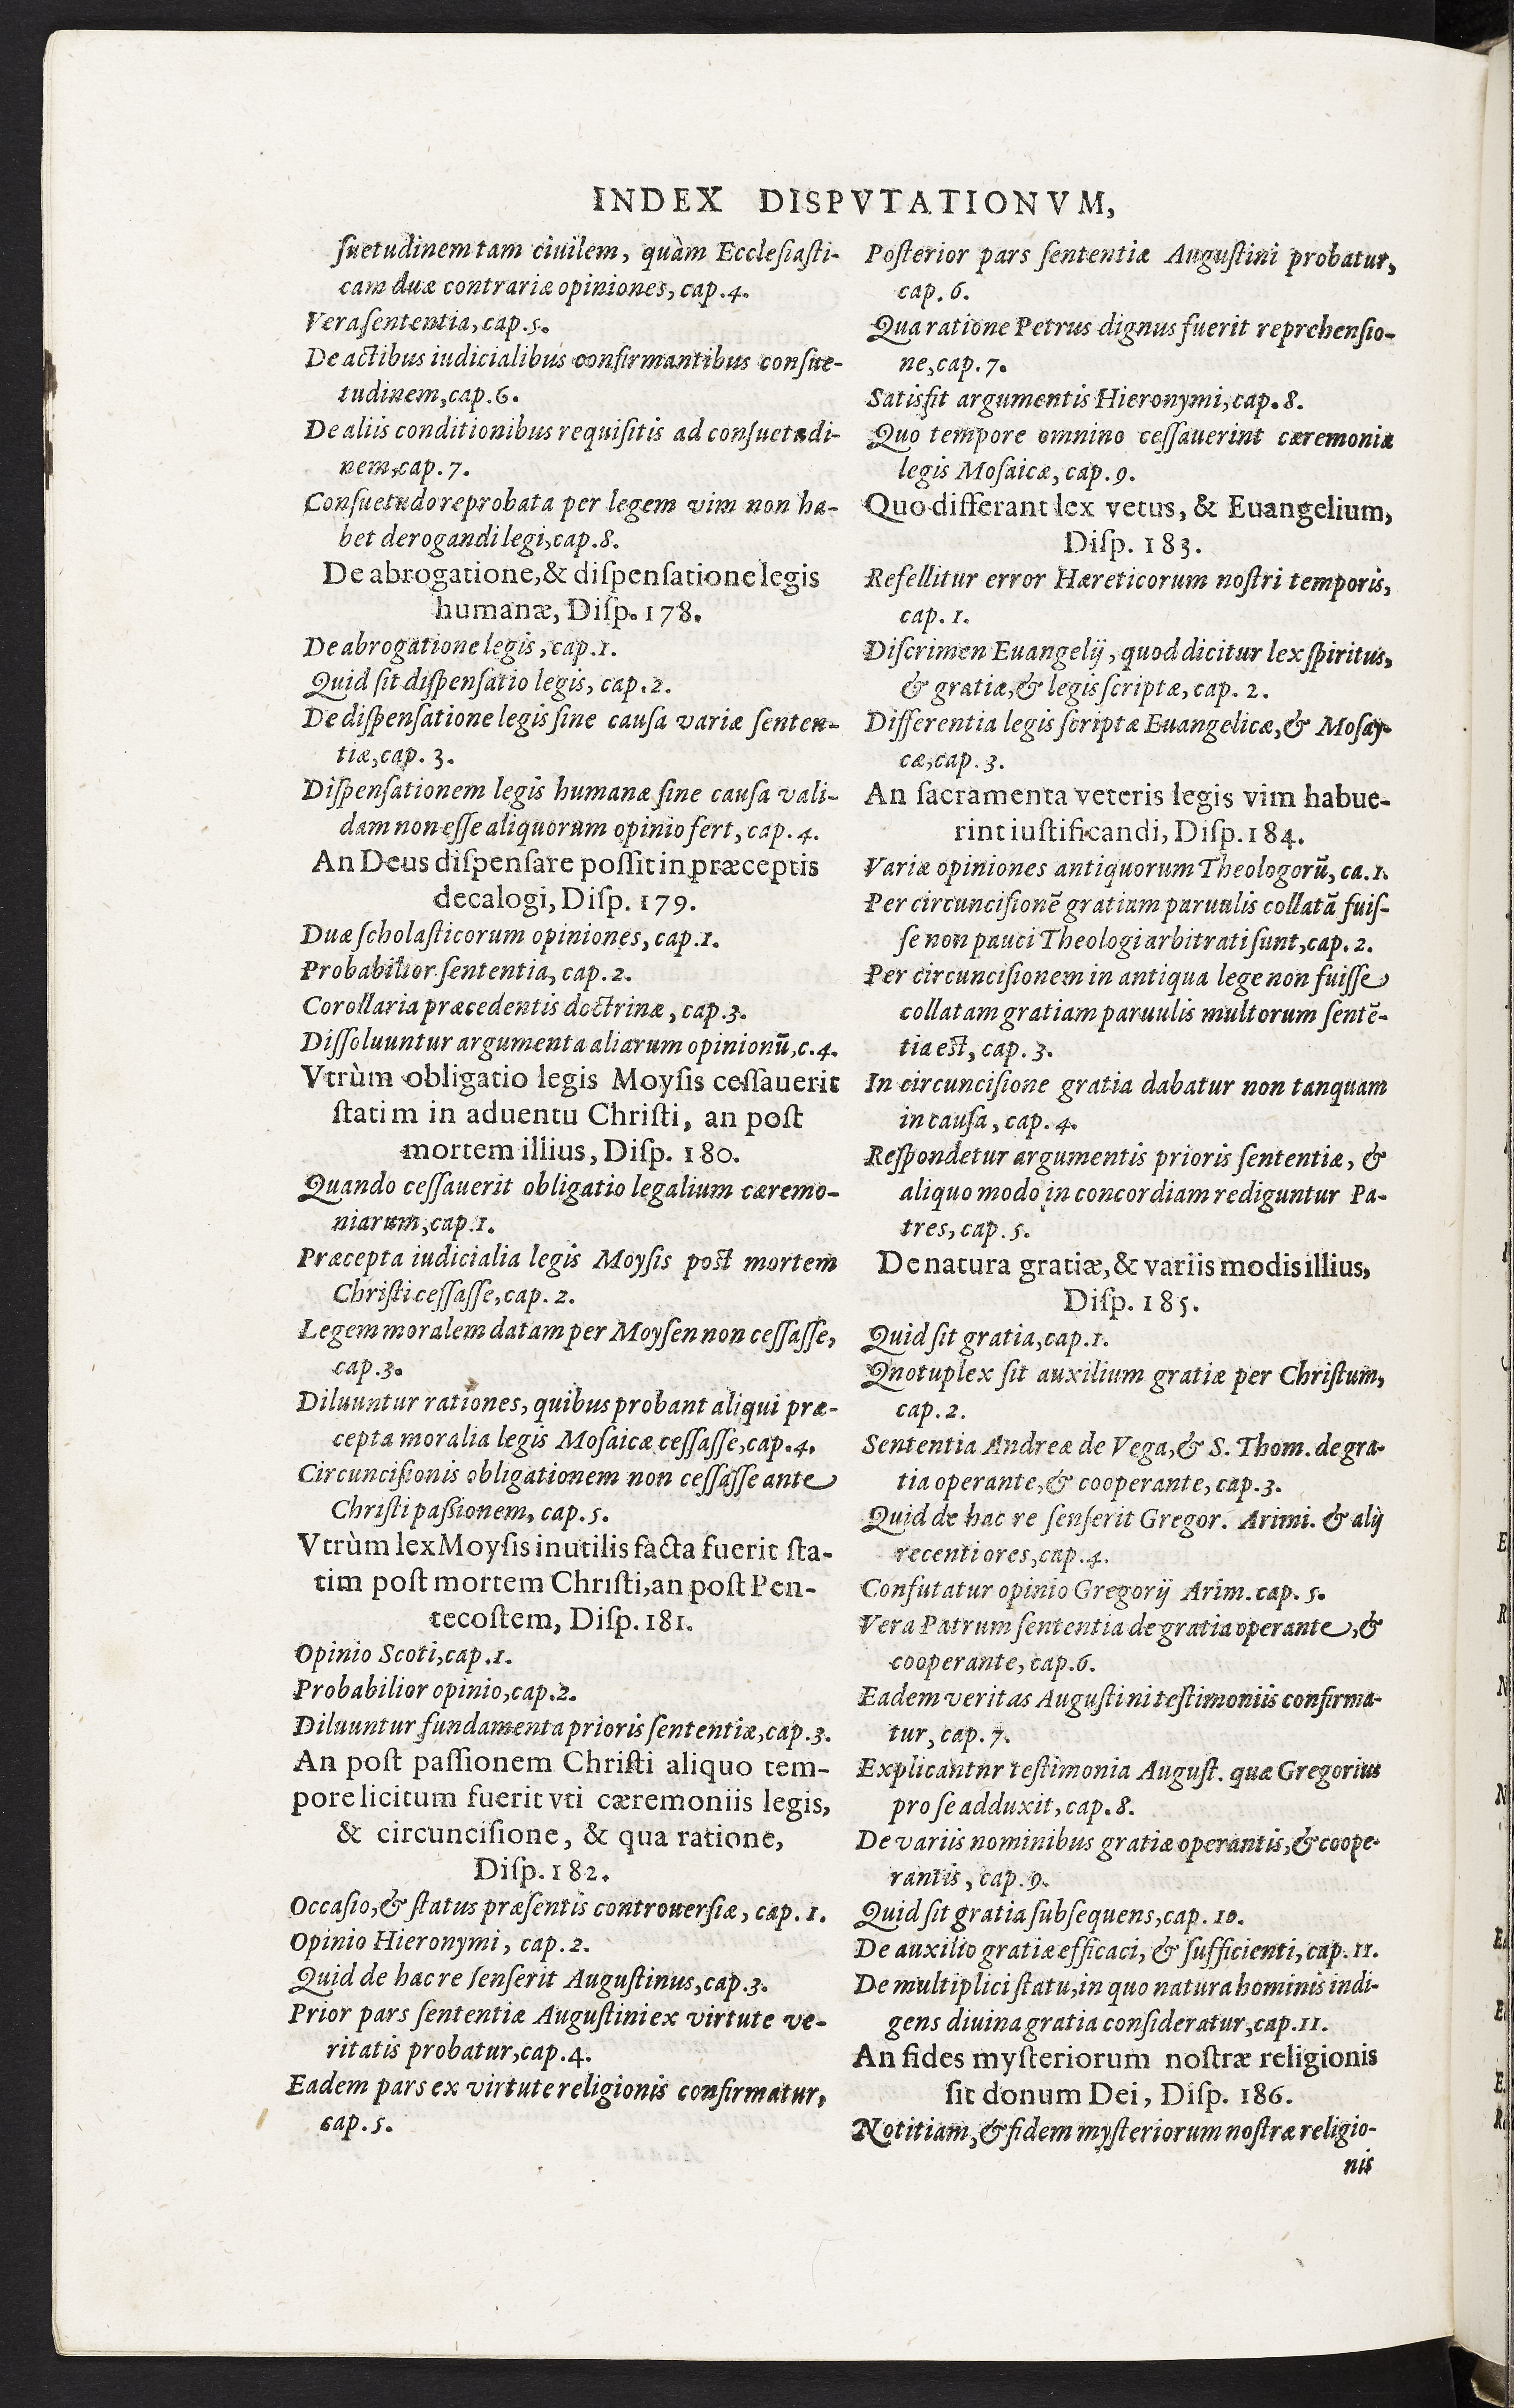 INDEX DISPVTATIONVM,
ſuetudinem tam ciuilem, quàm Eccleſiaſti-
cam duæ contrariæ opiniones, cap.4.
Vera ſententia, cap.5.
De actibus iudicialibus confirmantibus conſue-
tudinem, cap.6.
De aliis conditionibus requiſitis ad conſuetudi-
nem, cap.7.
Conſuetudo reprobata per legem vim non ha-
bet derogandi legi, cap.8.
De abrogatione, & diſpenſatione legis
humanæ, Diſp. 178.
De abrogatione legis, cap.1.
Quid ſit diſpenſatio legis, cap.2.
De diſpenſatione legis ſine cauſa variæ ſenten-
tiæ, cap. 3.
Diſpenſationem legis humanæ ſine cauſa vali-
dam non eſſe aliquorum opinio fert, cap.4.
An Deus diſpenſare poſſit in præceptis
decalogi, Diſp. 179.
Duæ ſcholaſticorum opiniones, cap.1.
Probabilior ſententia, cap.2.
Corollaria præcedentis doctrinæ, cap.3.
Diſſoluuntur argumenta aliarum opinionū, c.4.
Vtrùm obligatio legis Moyſis ceſſauerit
ſtatim in aduentu Chriſti, an poſt
mortem illius, Diſp. 180.
Quando ceſſauerit obligatio legalium cæremo-
niarum, cap.1.
Præcepta iudicialia legis Moyſis poſt mortem
Chriſti ceſſaſſe, cap. 2.
Legem moralem datam per Moyſen non ceſſaſſe,
cap.3.
Diluuntur rationes, quibus probant aliqui præ-
cepta moralia legis Moſaicæ ceſſaſſe, cap.4.
Circunciſionis obligationem non ceſſaſſe ante
Chriſti paßionem, cap.5.
Vtrùm lex Moyſis inutilis facta fuerit ſta-
tim poſt mortem Chriſti, an poſt Pen-
tecoſtem, Diſp. 181.
Opinio Scoti, cap.1.
Probabilior opinio, cap.2.
Diluuntur fundamenta prioris ſententiæ, cap.3.
An poſt paſſionem Chriſti aliquo tem-
pore licitum fuerit vti cæremoniis legis,
& circunciſione, & qua ratione,
Diſp. 182.
Occaſio, & ſtatus præſentis controuerſiæ, cap. 1.
Opinio Hieronymi, cap.2.
Quid de hac re ſenſerit Auguſtinus, cap.3.
Prior pars ſententiæ Auguſtini ex virtute ve-
ritatis probatur, cap.4.
Eadem pars ex virtute religionis confirmatur,
cap.5.
Poſterior pars ſententiæ Auguſtini probatur,
cap. 6.
Qua ratione Petrus dignus fuerit reprehenſio-
ne, cap.7.
Satisfit argumentis Hieronymi, cap.8.
Quo tempore omnino ceſſauerint cæremoniæ
legis Moſaicæ, cap.9.
Quo differant lex vetus, & Euangelium,
Diſp. 183.
Refellitur error Hæreticorum noſtri temporis,
cap. 1.
Diſcrimen Euangelij, quod dicitur lex ſpiritus,
& gratiæ, & legis ſcriptæ, cap. 2.
Differentia legis ſcriptæ Euangelicæ, & Moſay-
cæ, cap.3.
An ſacramenta veteris legis vim habue-
rint iuſtificandi, Diſp. 184.
Variæ opiniones antiquorum Theologorū, ca.1.
Per circunciſionē gratiam paruulis collatā fuiſ-
ſe non pauci Theologi arbitrati ſunt, cap. 2.
Per circunciſionem in antiqua lege non fuiſſe
collatam gratiam paruulis multorum ſentē-
tia eſt, cap. 3.
In circunciſione gratia dabatur non tanquam
in cauſa, cap. 4.
Reſpondetur argumentis prioris ſententiæ, &
aliquo modo in concordiam rediguntur Pa-
tres, cap. 5.
De natura gratiæ, & variis modis illius,
Diſp. 185.
Quid ſit gratia, cap.1.
Qnotuplex ſit auxilium gratiæ per Chriſtum,
cap.2.
Sententia Andreæ de Vega, & S. Thom. de gra-
tia operante, & cooperante, cap.3.
Quid de hac re ſenſerit Gregor. Arimi. & alij
recentiores, cap.4.
Confutatur opinio Gregorij Arim. cap. 5.
Vera Patrum ſententia de gratia operante, &
cooperante, cap.6.
Eadem veritas Auguſtini teſtimoniis confirma-
tur, cap.7.
Explicantnr teſtimonia Auguſt. quæ Gregorius
pro ſe adduxit, cap.8.
De variis nominibus gratiæ operantis, & coope-
rantis, cap.9.
Quid ſit gratia ſubſequens, cap. 10.
De auxilio gratiæ efficaci, & ſufficienti, cap.11.
De multiplici ſtatu, in quo natura hominis indi-
gens diuina gratia conſideratur, cap.11.
An fides myſteriorum noſtræ religionis
ſit donum Dei, Diſp. 186.
Notitiam, & fidem myſteriorum noſtræ religio-
nis